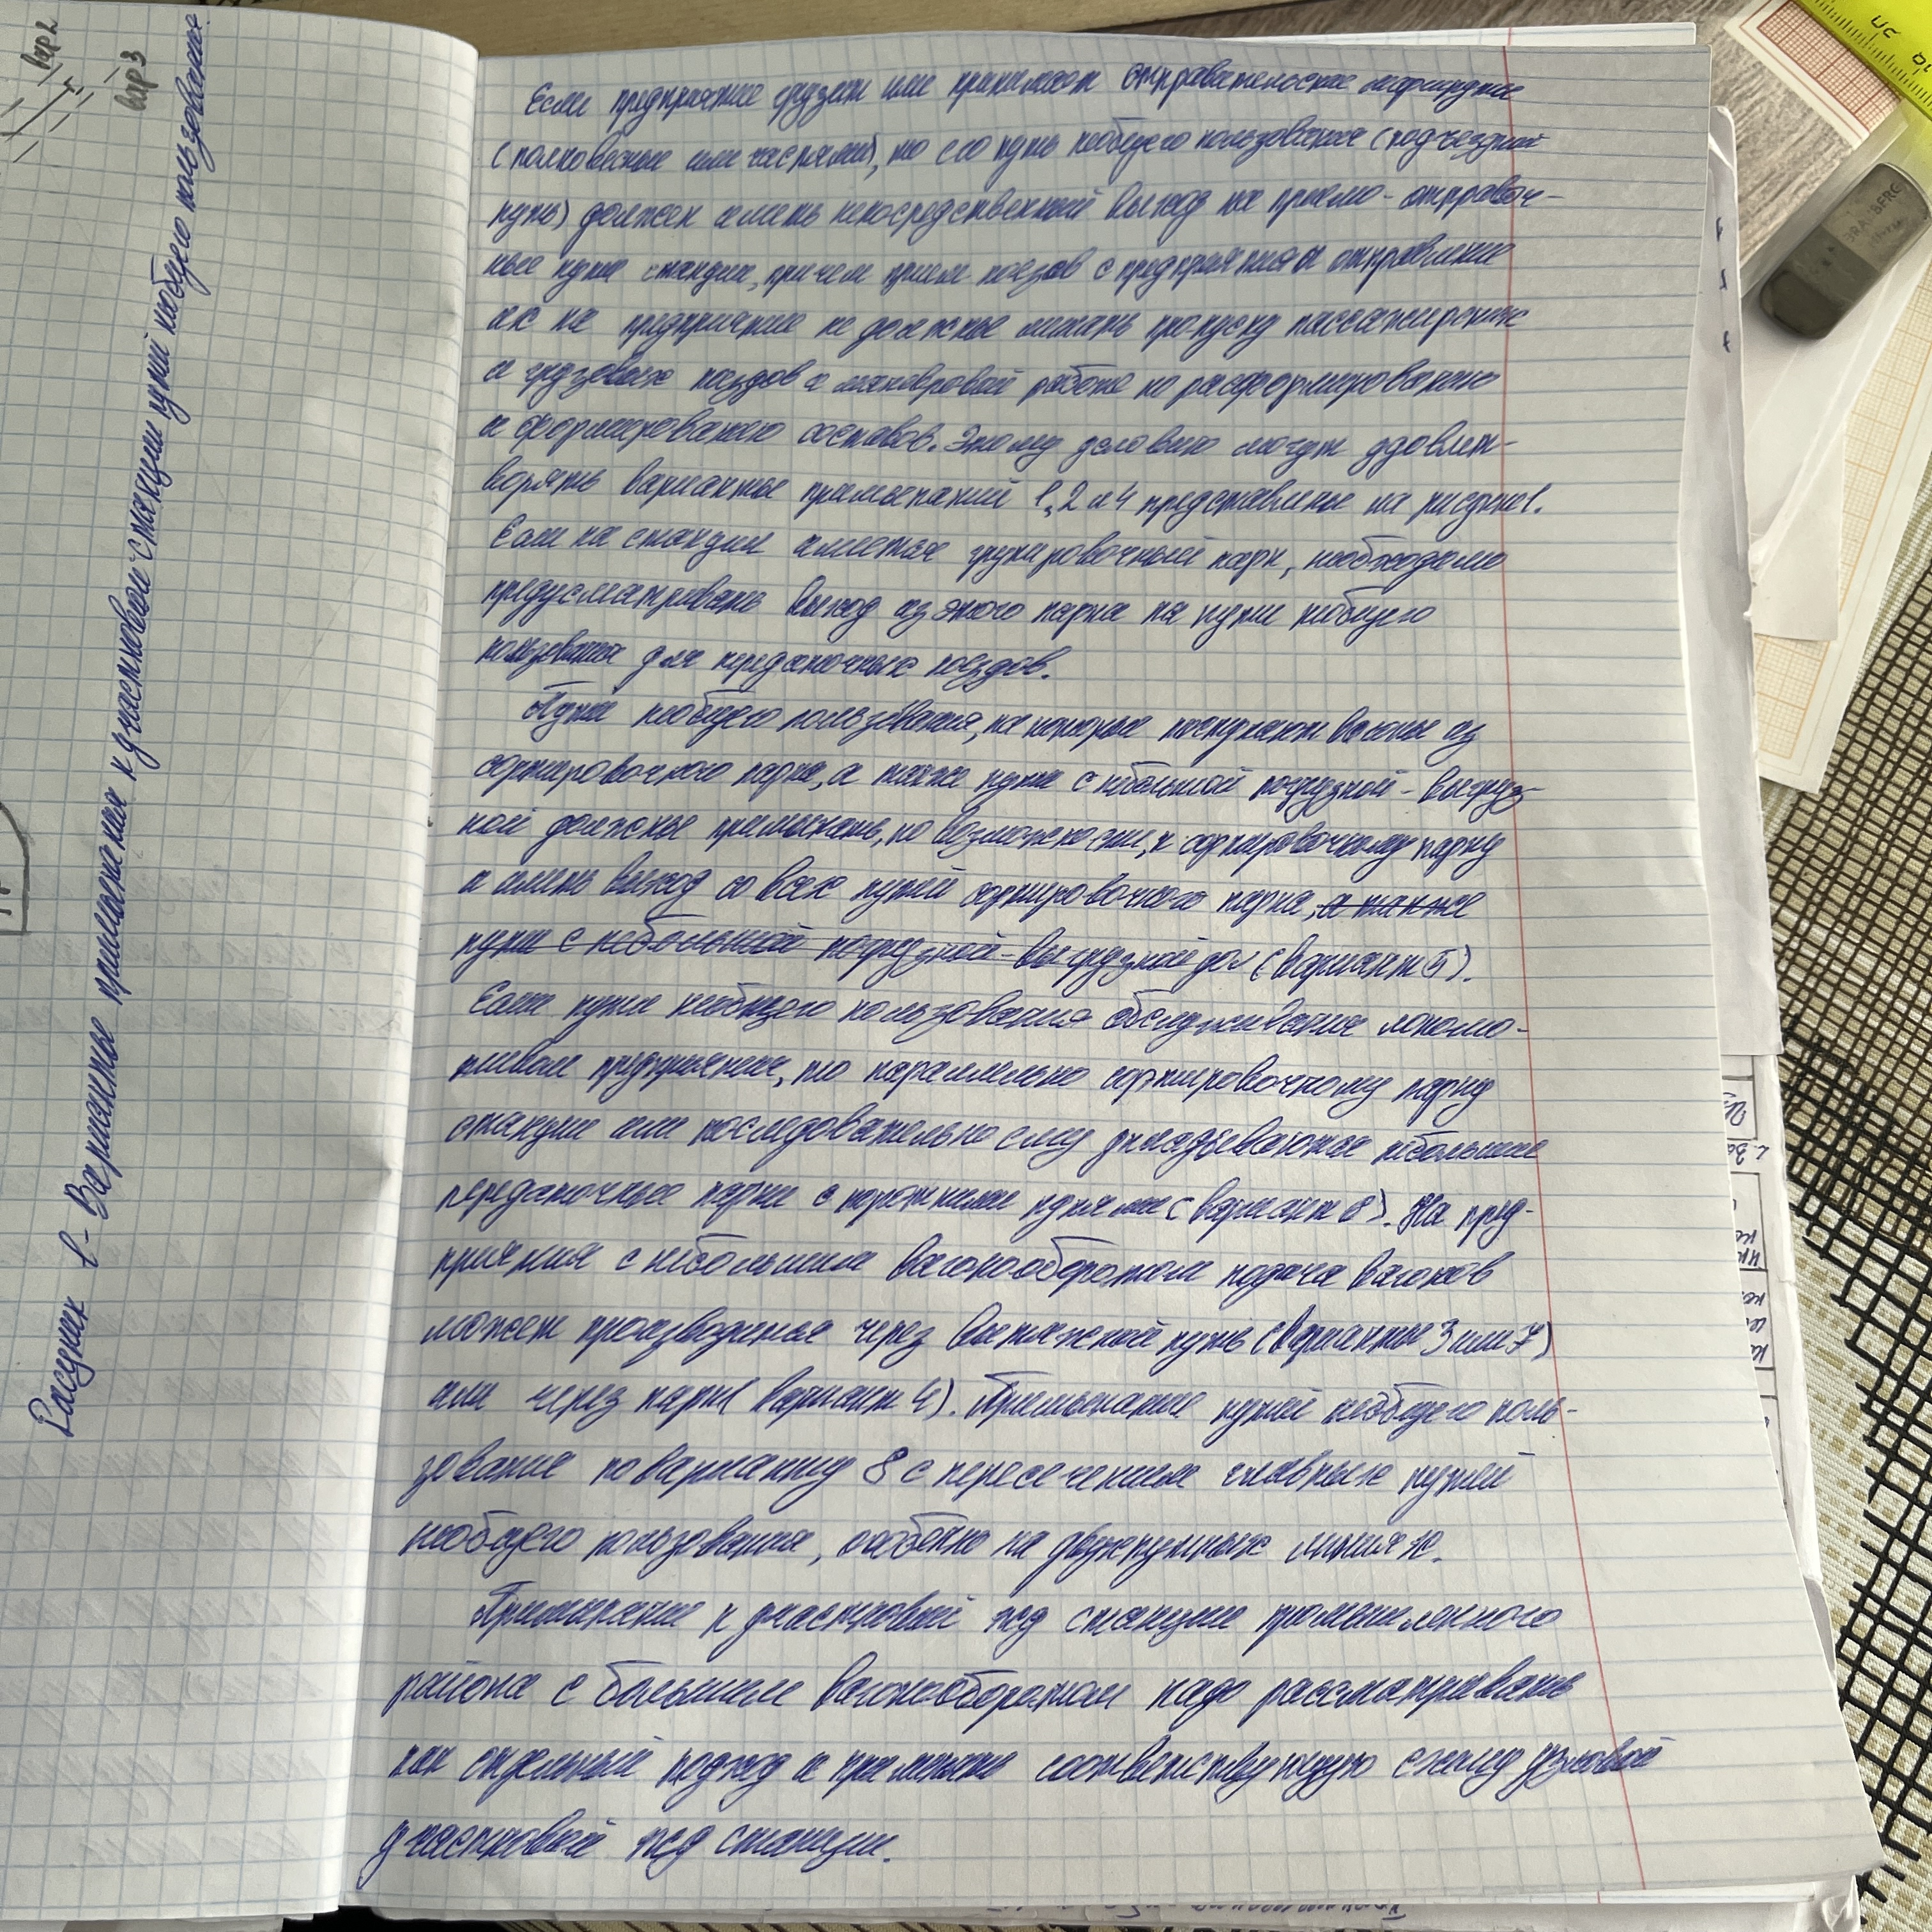 вар 2
вар 3
Рисунок 1 - Варианты примыкания к участковой станции путей необщего пользования
Если предприятие грузит или принимает отправительские маршруты
(полновесные или частями), то его путь необщего пользования (подъездной
путь) должен иметь непосредственный выход на приемо-отправоч-
ные пути станции, причем прием поездов с предприятия и отправление
их на предприятие не должны мешать пропуску пассажирских
и грузовых поездов и маневровой работе по расформированию
и формированию составов. Этому условию могут удовлет-
ворять варианты примыканий 1, 2 и 4 представлены на рисунке 1.
Если на станции имеется группировочный парк, необходимо
предусматривать выход из этого парка на пути необщего
пользования для передаточных поездов.
Пути необщего пользования, на которые поступают вагоны из
сортировочного парка, а также пути с небольшой погрузкой-выгруз-
кой должны примыкать, по возможности, к сортировочному парку
и иметь выход со всех путей сортировочного парка, а также
пути с небольшой погрузкой-выгрузкой дол (вариант 5).
Если пути необщего пользования обслуживания локомо-
тивом предприятия, то параллельно сортировочному парку
станции или последовательно ему укладываются небольшие
передаточные парки с короткими путями (вариант 6). На пред-
приятия с небольшим вагонооборотом подача вагонов
может производиться через вытяжной путь (варианты 3 или 7)
или через парк (вариант 4). Примыкание путей необщего поль-
зование по варианту 8 с пересечением главных путей
необщего пользования, особенно на двухпутных линиях.
Примыкание к участковой жд станции промышленного
района с большим вагонооборотом надо рассматривать
как отдельный подход и применять соответствующую схему узловой
участковой жд станции.